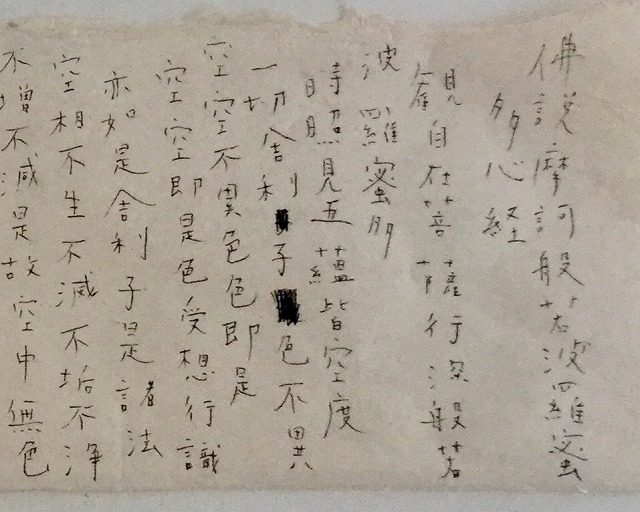 佛說摩訶般若波羅蜜
多心経
觀自在菩薩行深般若
波羅蜜多
時照見五蘊皆空度
一切舍利子色不異
空空不異色色即是
空空即是色受想行識
亦如是舍利子是諸法
空相不生不滅不垢不浄
不増不減是故空中無色